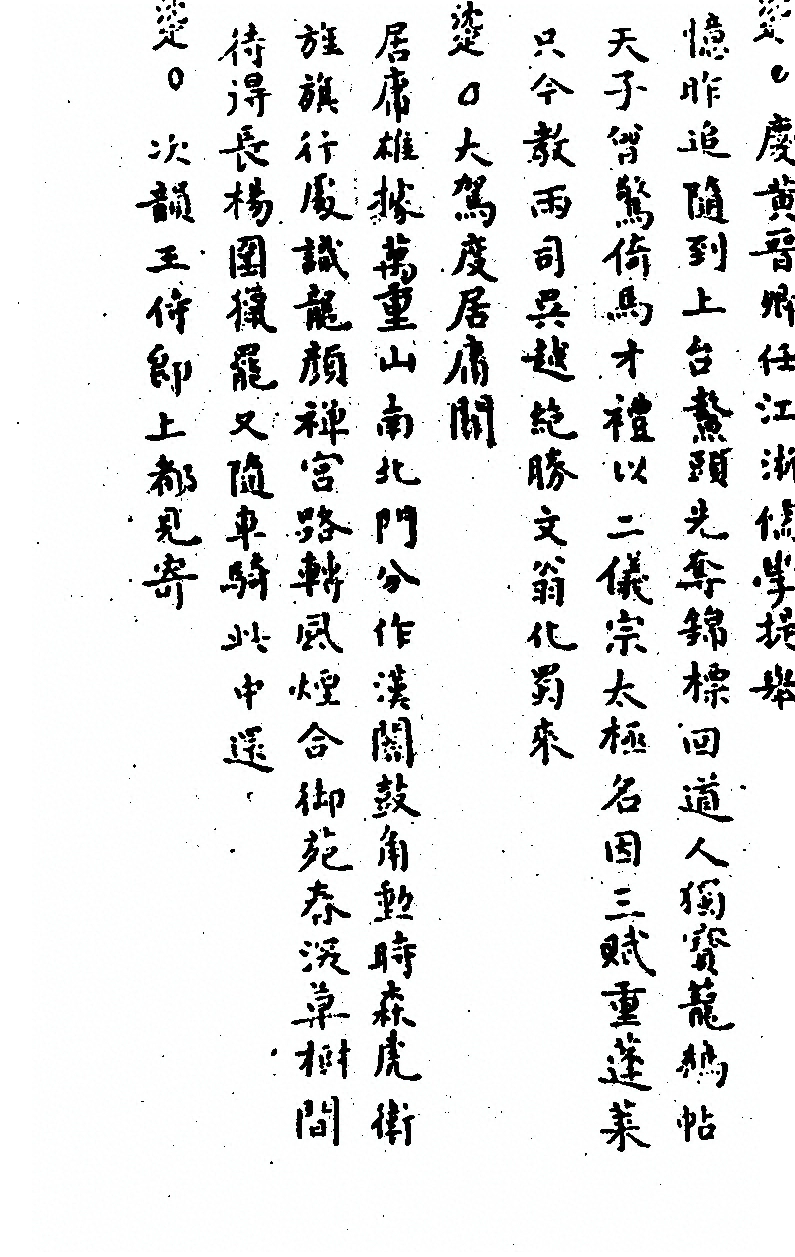 慶黃晉卿任江浙儒學提舉
憶昨追隨到上台鰲頭先奪錦標回道人獨寶籠鵝帖
天子曾驚倚馬才禮以二儀宗太極名因三賦重蓬萊
只今教雨司吳越絶勝文翁化蜀來
〇大駕度居庸關
居庸雄據萬重山南北門分作漢關鼓角動時森虎衛
旌旗行處識龍顏禅宮路轉風煙合御苑春深草樹間
待得長楊圍獵罷又隨車騎此中還
〇次韻王侍郎上都見寄